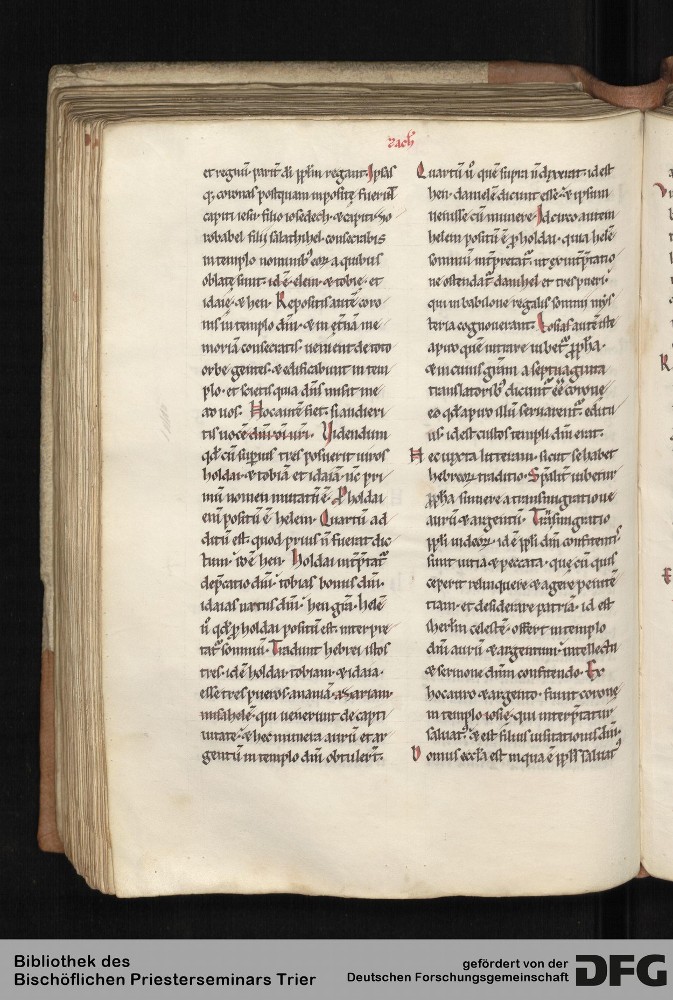 zach
et regnū parit̄ d̄i pp̄lm regant. Ipsas
q; coronas postquam inposite fuerūt
capiti iesu filio iosedech. & capiti zo
robabel filii salathihel. consecrabis
in templo nominibꝰ eoꝝ a quibus
oblate sunt. id ē. elem. & tobie. et
idaie. & hen. Repositis autē coro
nis in templo dn̄i. & in et̄nā me
moriam consecratis. venient de toto
orbe gentes. & edificabunt in tem
plo. et scietis quia dn̄s misit me
ad uos. Hoc autē fiet. si audieri
tis uocē dn̄i dī ur̄i. Videndum
qd̄ cū superius tres posuerit uiros
holdai. & tobiā et idaiā. nc̄ pri
mū nomen mutatū ē. Pro holdai
enī positū ē helem. Quartū ad
ditū est. quod prius n̄ fuerat dic
tum. id ē hen. Holdai int̄p̄tat̄
dep̄catio dn̄i. tobias bonus dn̄i.
idaias uirtus dn̄i. hen gr̄a. helē
u̅ qd̄ p̱ holdai positū est. interpre
tat̄ somniū. Tradunt hebrei istos
tres. idē holdai. tobiam. & idaia.
esse tres pueros. ananiā. azariam.
misahelē. qui uenerunt de capti
uitate. & hec munera aurū et ar
gentū in templo dn̄i obtulert̄.
Quartū u̅ quē supra n̄ dixerat. id est
hen. danielē dicunt esse. & ipsum
uenisse cū munere. Idcirco autem
helem positū ē p̱ holdai. quia helē
somniū int̄pretat̄. ut ex int̄p̄tatio
ne ostendat̄ danihel et tres pueri.
qui in babilone regalis somnii mys
teria cognouerant. Iosias autē iste
ad quē intrare iubet̄ pp̄ha.
& in cuius
translatoribꝰ dicunt̄ eē corone
eo qd̄ apud illū seruarent̄. editu
us. id est custos templi dn̄i erat.
Hec iuxta litteram. sicut se habet
hebreoꝝ traditio. Sp̄alit̄ iubetur
pp̄ha sumere a transmigratione
aurū & argentū. Transmigratio
pp̄li iudeoꝝ. id ē pp̄li dn̄i confitentis
sunt uitia & peccata. que cū quis
ceperit relinquere & agere penitē
tiam. et desiderare patriā. id est
iherl̄m celestē. offert in templo
dn̄i aurū & argentum. intellectu
& sermone dn̄m confitendo. Ex
hoc auro & argento. fiunt corone
in templo iosie. qui interp̄tatur
saluatꝰ. & est filius uisitationis dn̄i.
Domus eccl̄a est in qua ē pp̄ls saluatꝰ
Bibliothek des
Bischöflichen Priesterseminars Trier
gefördert von der
Deutschen Forschungsgemeinschaft
DFG